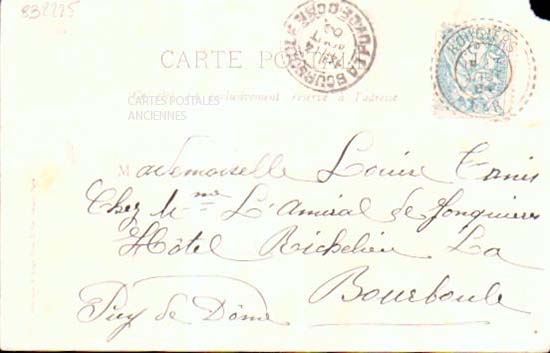 832225
CARTE POSTALE
Ce côté est exclusivement réservé à l'adresse
CARTES POSTALES
ANCIENNES
LA BOURBOULE PUY-DE-DOME
ROUGIERS
Mademoiselle Louise
Chez Mme L'Amiral de Jonquières
Hôtel Richelieu La
Bourboule
Puy de Dôme